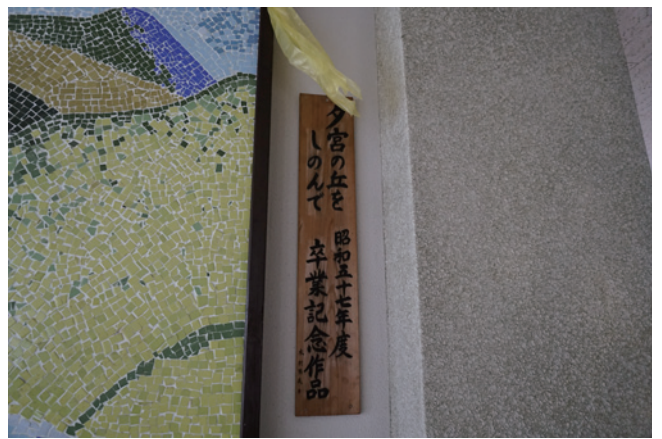 夕宮の丘を
しのんで
昭和五十七年度
卒業記念作品